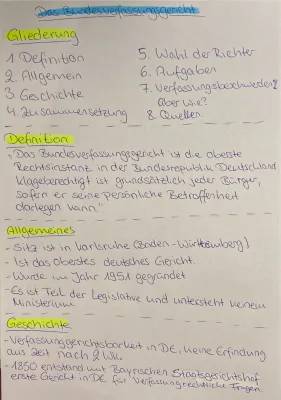 Das Bundesverfassungsgericht
Gliederung
1 Definition
2 Allgemein
3 Geschichte
4. Zusammensetzung
5. Wahl der Richter
6. Aufgaben
7. Verfassungsbeschwerden?
Aber wie?
8. Quellen
Definition
"Das Bundesverfassungsgericht ist die oberste
Rechtsinstanz in der Bundesrepublik Deutschland
klageberechtigt ist grundsätzlich jeder Bürger,
sofern er seine persönliche Betroffenheit
darlegen kann."
Allgemeines
- Sitz ist in Karlsruhe (Baden-Württemberg)
- Ist das Oberstes deutsches Gericht.
- Wurde im Jahr 1951 gegründet
- Es ist Teil der Legislative und untersteht keinem
Ministerium
Geschichte
- Verfassungsgerichtsbarkeit in DE, keine Erfindung
aus Zeit nach 2 WK.
- 1850 entstand mit Bayrischen Staatsgerichtshof
erste Gericht in DE für verfassungsrechtliche Fragen